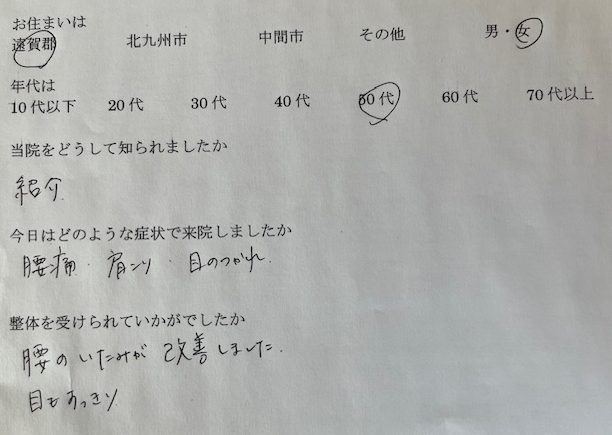 お住まいは
遠賀郡 北九州市 中間市 その他 男・女
年代は
10代以下 20代 30代 40代 50代 60代 70代以上
当院をどうして知られましたか
紹介
今日はどのような症状で来院しましたか
腰痛・肩こり・目のつかれ.
整体を受けられていかがでしたか
腰のいたみが改善しました.
目もすっきり